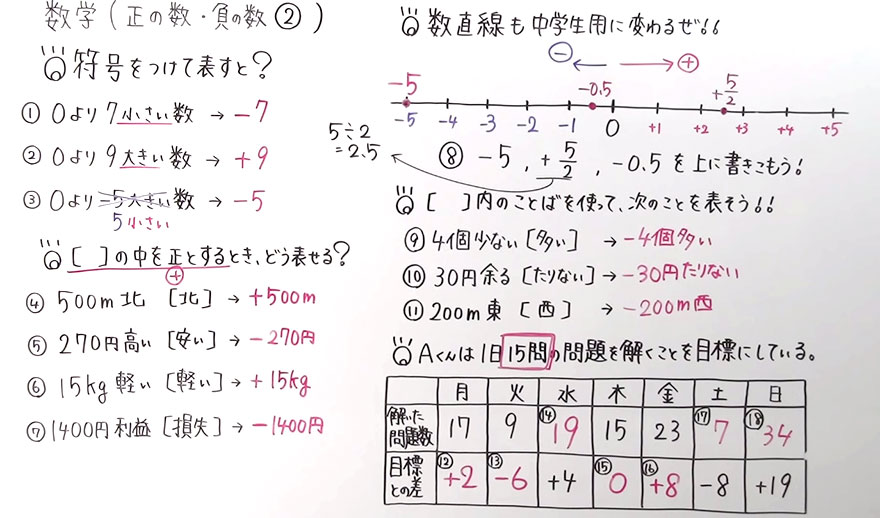 数学（正の数・負の数②）
符号をつけて表すと？
① 0より7小さい数 → −7
② 0より9大きい数 → +9
③ 0より−5大きい数 → −5
5小さい
[ ]の中を正とするとき、どう表せる？
⊕
④ 500m北 [北] → +500m
⑤ 270円高い [安い] → −270円
⑥ 15kg軽い [軽い] → +15kg
⑦ 1400円利益 [損失] → −1400円
数直線も中学生用に変わるぜ!!
⊖ ← → ⊕
−5 −0.5 +5/2
−5 −4 −3 −2 −1 0 +1 +2 +3 +4 +5
5÷2
=2.5
⑧ −5, +5/2, −0.5を上に書きこもう!
[ ]内のことばを使って、次のことを表そう!!
⑨ 4個少ない [多い] → −4個多い
⑩ 30円余る [たりない] → −30円たりない
⑪ 200m東 [西] → −200m西
Aくんは1日15問の問題を解くことを目標にしている。
月 火 水 木 金 土 日
解いた問題数 17 9 ⑭19 15 23 ⑰7 ⑱34
目標との差 ⑫+2 ⑬−6 +4 ⑮0 ⑯+8 −8 +19